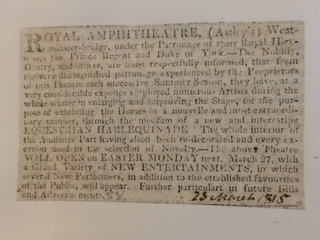 ROYAL AMPHITHEATRE, (Astley's) West-
minster-bridge, under the Patronage of their Royal High-
nesses the Prince Regent and Duke of York.—The Nobility,
Gentry, and others, are most respectfully informed, that from
the very distinguished patronage experienced by the Proprietors
of this Theatre each successive Summer Season, they have, at a
very considerable expence employed numerous Artists during the
whole winter in enlarging and improving the Stage, for the pur-
pose of exhibiting the Horses in a novel and most extraordi-
nary manner, through the medium of a new and interesting
EQUESTRIAN HARLEQUINADE The whole interior of
the Audience Part having also been re-decorated and every ex-
ertion used in the selection of Novelty.—The above Theatre
WILL OPEN on EASTER MONDAY next, March 27, with
a Grand Variety of NEW ENTERTAINMENTS, in which
several New Performers, in addition to the established favourites
of the Public, will appear. Further particulars in future Bills
and Advertisements.
23 March 1815